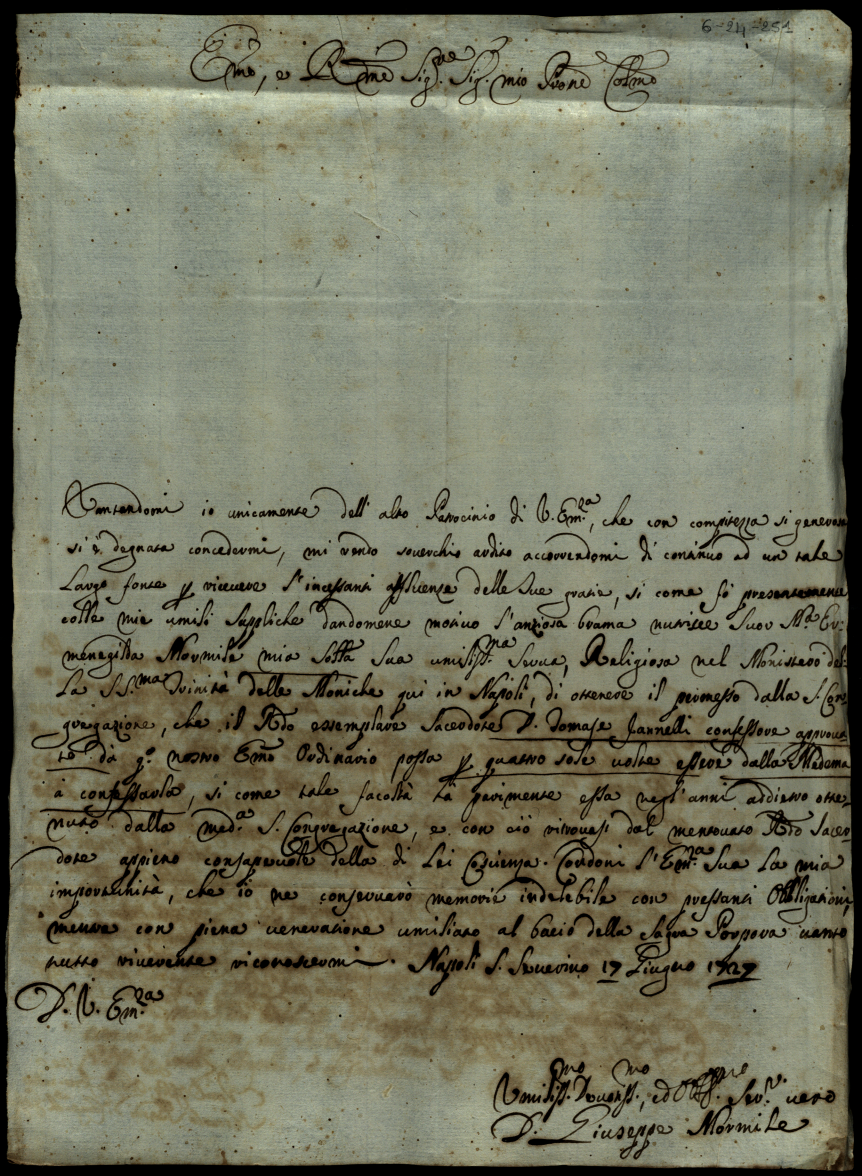 6-24-251
Emo, e Rmo Sig.re Sig. mio Prone Colmo
Vantandomi io unicamente dell' alto Patrocinio di V. Em.za, che con compitezza si generosa
si è degnata concedermi, mi rendo soverchio ardito accorrendomi di continuo ad un tale
Largo fonte p ricevere l'incessanti affluenze delle Sue gratie, si come fò presentemente
colle mie umili suppliche dandomene motivo l'anziosa brama nutrisce Suor M.a Er:
menegilda Mormile mia Sorella Sua umiliss.ma Serva, Religiosa nel Monistero del:
La S.S.ma Trinità delle Moniche qui in Napoli, di ottenere il permesso dalla S. Con:
gregazione, che il Rdo essemplare Sacerdote D. Tomase Jannelli confessore approva:
to dà q.o nostro Emo Ordinario possa p quattro sole volte essere dalla Medema
à confessarla, si come tale facoltà tà parimente essa negl'anni addietro otte:
nuto dalla med.a S. Congregazione, e con ciò ritrovasi dal mentovato Rdo Sacer:
dote appieno consapevole della di Lei Coscienza. Condoni l'Em.za Sua La mia
importunità, che io ne conserverò memorie indelebile con pressanti Obbligationi,
mentre con piena veneratione umiliato al bacio della Sagra Porpora vanto
tutto riverente riconoscermi. Napoli S. Severino 17 Giugno 1727
D. V. Em.za
Umiliss.mo Devotiss.mo, ed Obblig.mo Ser.re vero
D. Giuseppe Mormile